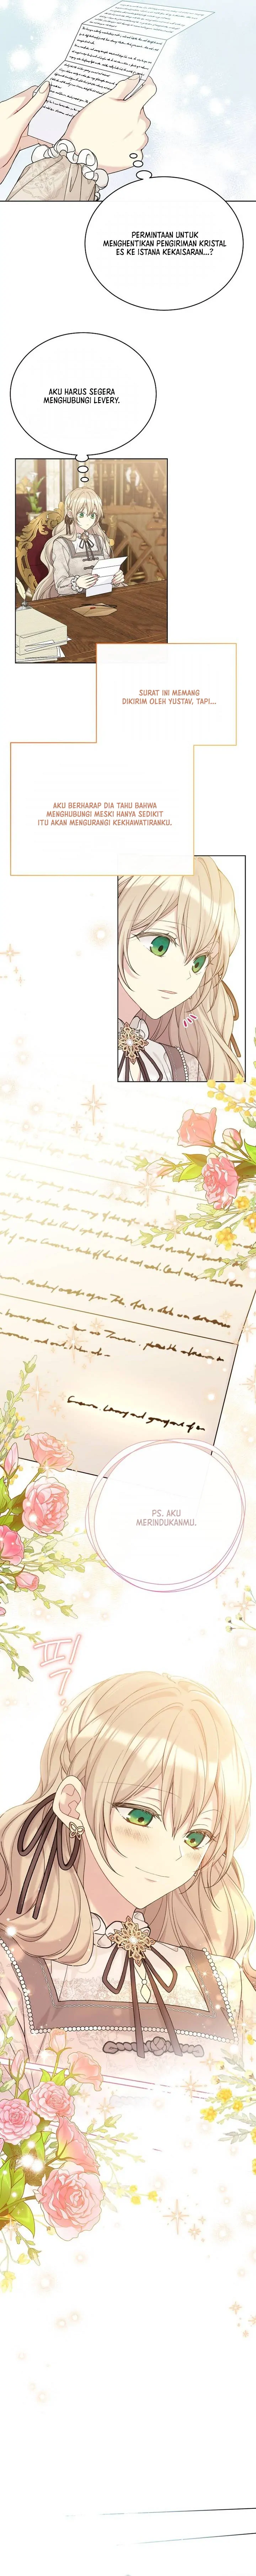 PERMINTAAN UNTUK
MENGHENTIKAN PENGIRIMAN KRISTAL
ES KE ISTANA KEKAISARAN...?
AKU HARUS SEGERA
MENGHUBUNGI LEVERY.
SURAT INI MEMANG
DIKIRIM OLEH YUSTAV, TAPI...
AKU BERHARAP DIA TAHU BAHWA
MENGHUBUNGI MESKI HANYA SEDIKIT
ITU AKAN MENGURANGI KEKHAWATIRANKU.
PS. AKU
MERINDUKANMU.